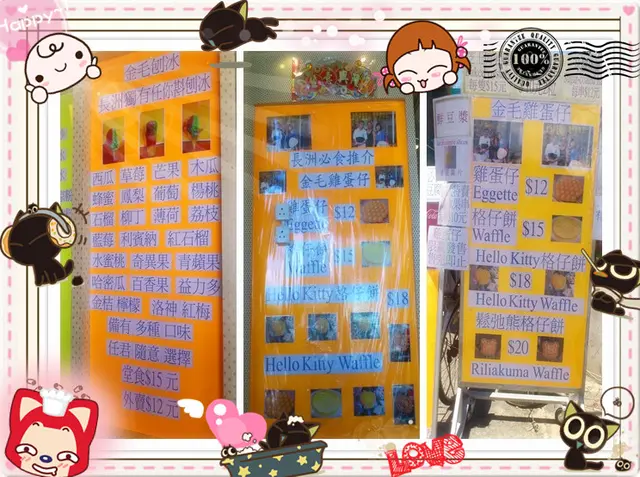 Happy
GUARANTEE QUALITY
100%
金毛刨冰
長洲獨有任你斟刨冰
西瓜 草莓 芒果 木瓜
蜂蜜 鳳梨 葡萄 楊桃
石榴 柳丁 薄荷 荔枝
藍莓 利賓納 紅石榴
水蜜桃 奇異果 青蘋果
哈密瓜 百香果 益力多
金桔 檸檬 洛神 紅梅
備有 多種 口味
任君 隨意 選擇
堂食$15 元
外賣$12 元
長洲必食推介
金毛雞蛋仔
雞蛋仔 $12
Eggette
格仔餅 $15
Waffle
Hello Kitty格仔餅
$18
Hello Kitty Waffle
金毛雞蛋仔
雞蛋仔 $12
Eggette
格仔餅 $15
Waffle
Hello Kitty格仔餅
$18
Hello Kitty Waffle
鬆弛熊格仔餅
$20
Riliakuma Waffle
LOVE